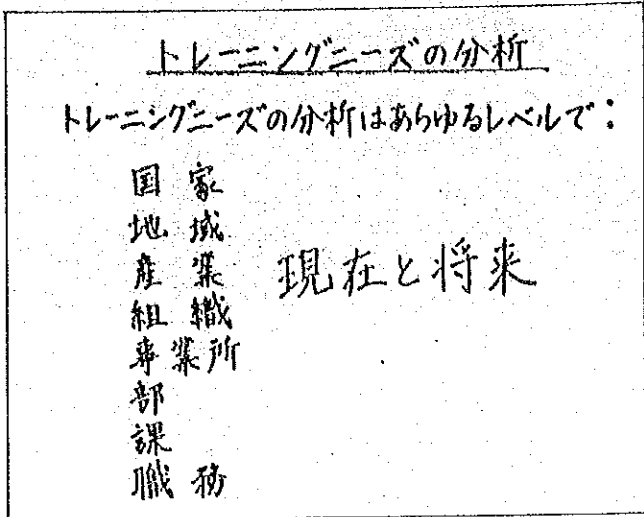 トレーニングニーズの分析
トレーニングニーズの分析はあらゆるレベルで:
国家
地域
産業
現在と将来
組織
事業所
部
課
職務